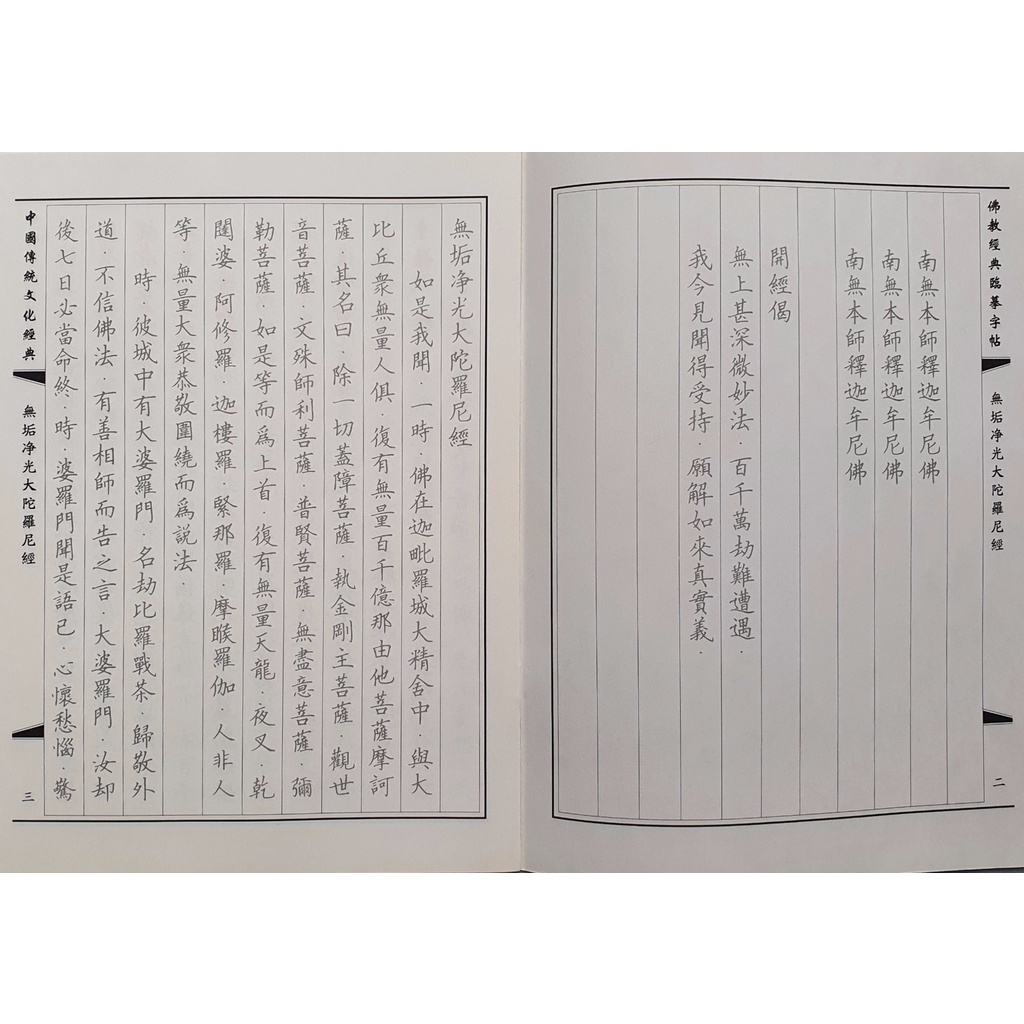 佛教經典臨摹字帖
無垢净光大陀羅尼經
二
南無本師釋迦牟尼佛
南無本師釋迦牟尼佛
南無本師釋迦牟尼佛
開經偈
無上甚深微妙法．百千萬劫難遭遇．
我今見聞得受持．願解如來真實義．
無垢净光大陀羅尼經
如是我聞．一時．佛在迦毗羅城大精舍中．與大
比丘衆無量人俱．復有無量百千億那由他菩薩摩訶
薩．其名曰．除一切蓋障菩薩．執金剛主菩薩．觀世
音菩薩．文殊師利菩薩．普賢菩薩．無盡意菩薩．彌
勒菩薩．如是等而爲上首．復有無量天龍．夜叉．乾
闥婆．阿修羅．迦樓羅．緊那羅．摩睺羅伽．人非人
等．無量大衆恭敬圍繞而爲説法．
時．彼城中有大婆羅門．名劫比羅戰茶．歸敬外
道．不信佛法．有善相師而告之言．大婆羅門．汝却
後七日必當命終．時．婆羅門聞是語已．心懷愁惱．驚
中國傳統文化經典
無垢净光大陀羅尼經
三